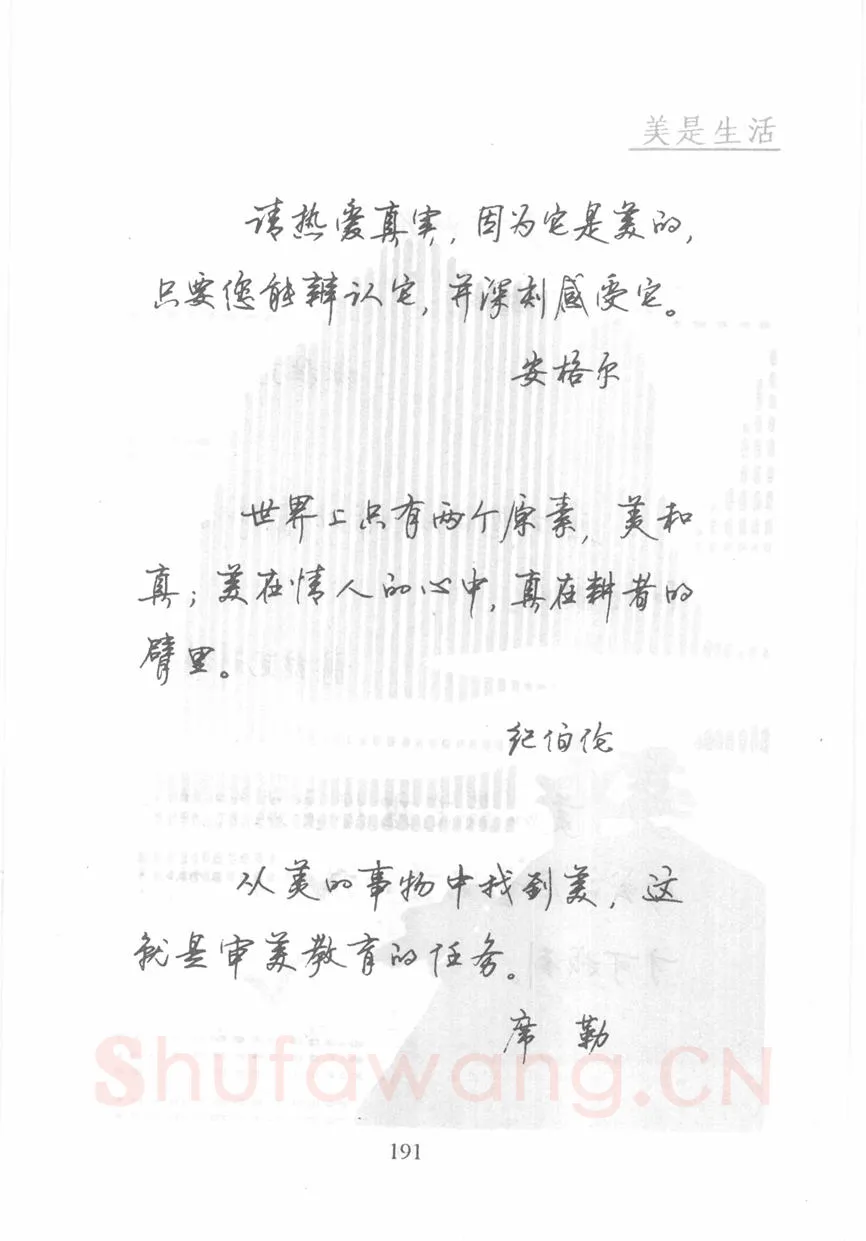 美是生活
请热爱真实，因为它是美的，
只要您能辩认它，并深刻感受它。
安格尔
世界上只有两个原素，美和
真；美在情人的心中，真在耕者的
臂里。
纪伯伦
从美的事物中找到美，这
就是审美教育的任务。
席 勒
Shufawang.CN
191